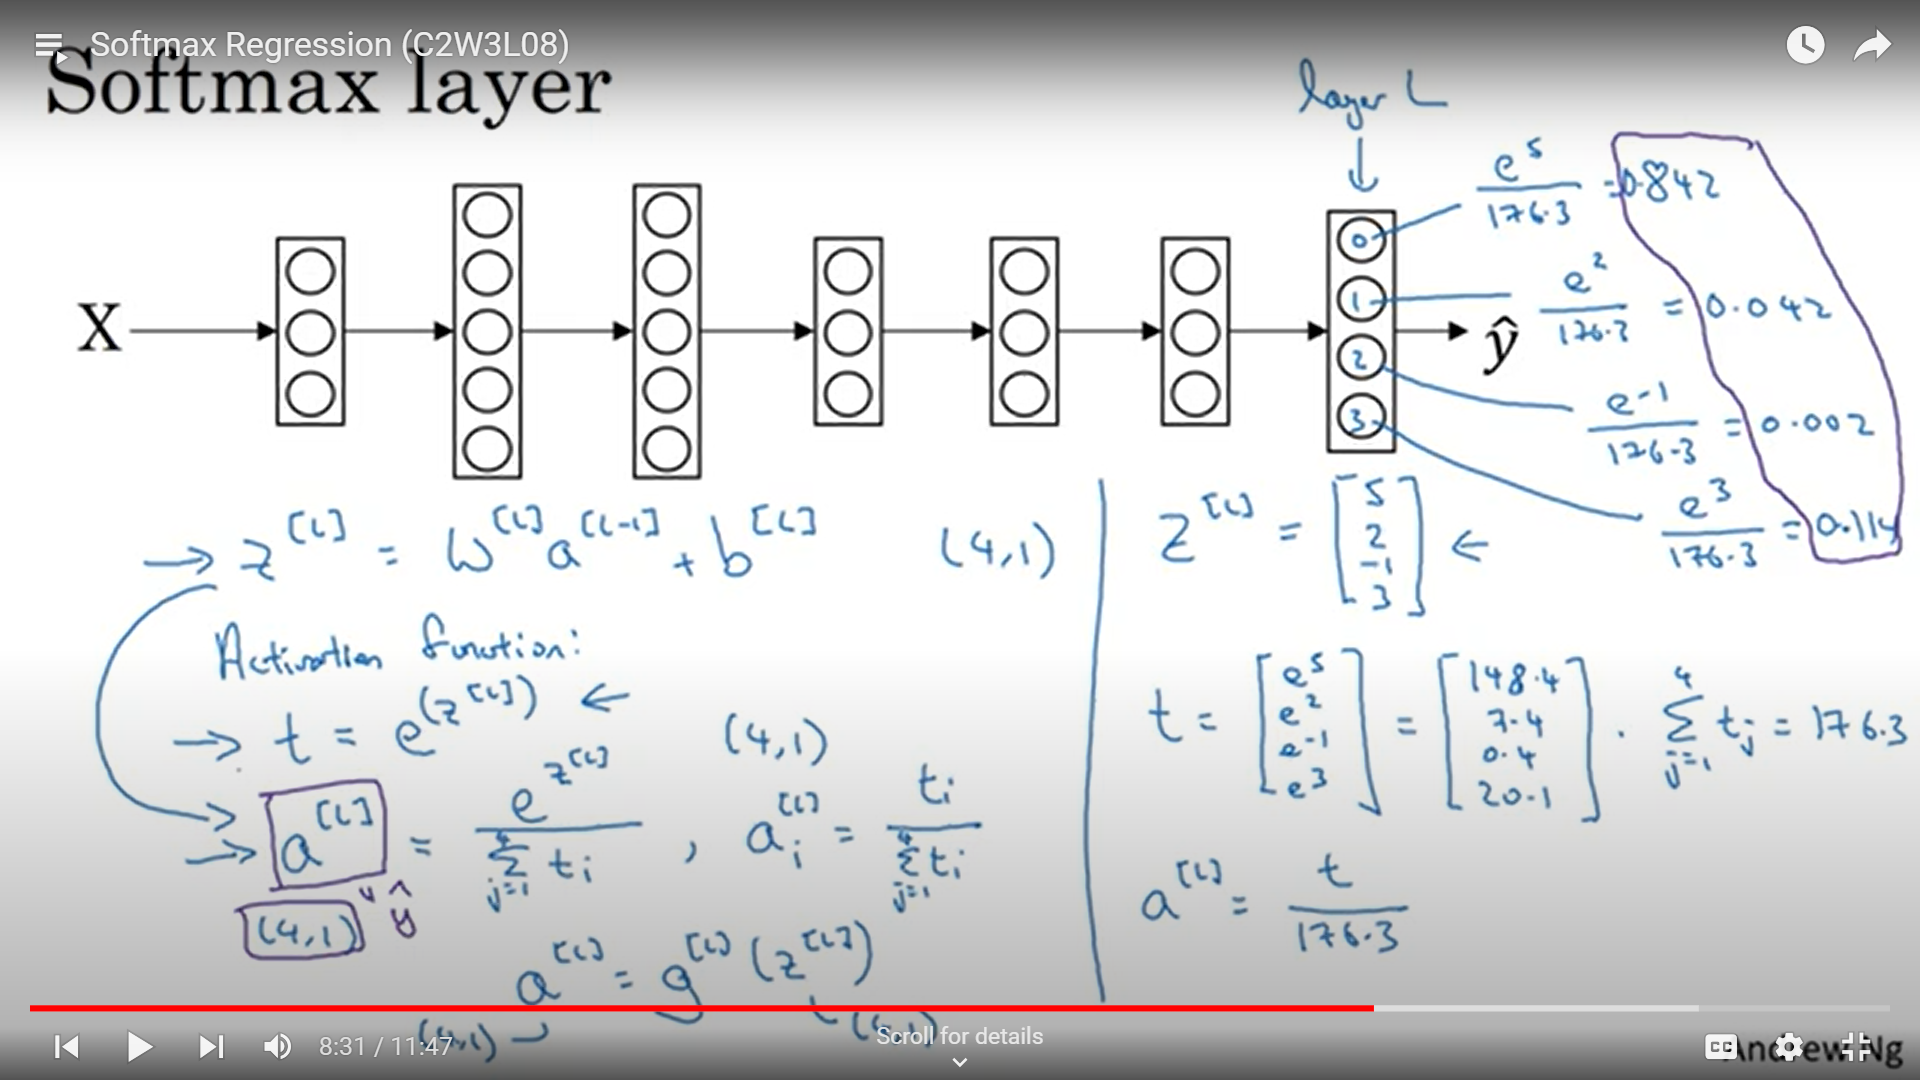 Softmax Regression (C2W3L08)
Softmax layer
layer L
X
0
1
2
3
ŷ
e^5 / 176.3 = 0.842
e^2 / 176.3 = 0.042
e^-1 / 176.3 = 0.002
e^3 / 176.3 = 0.114
→ z^[L] = W^[L] a^[L-1] + b^[L] (4,1)
Activation function:
→ t = e^(z^[L]) ← (4,1)
→ a^[L] = e^z^[L] / ∑_{j=1}^4 t_i , a_i^[L] = t_i / ∑_{j=1}^4 t_i
(4,1) ŷ
a^[L] = g^[L] (z^[L])
(4,1) (4,1)
z^[L] = [5 2 -1 3] ←
t = [e^5 e^2 e^-1 e^3] = [148.4 7.4 0.4 20.1] . ∑_{j=1}^4 t_j = 176.3
a^[L] = t / 176.3
8:31 / 11:47
Scroll for details
CC
Andrew Ng